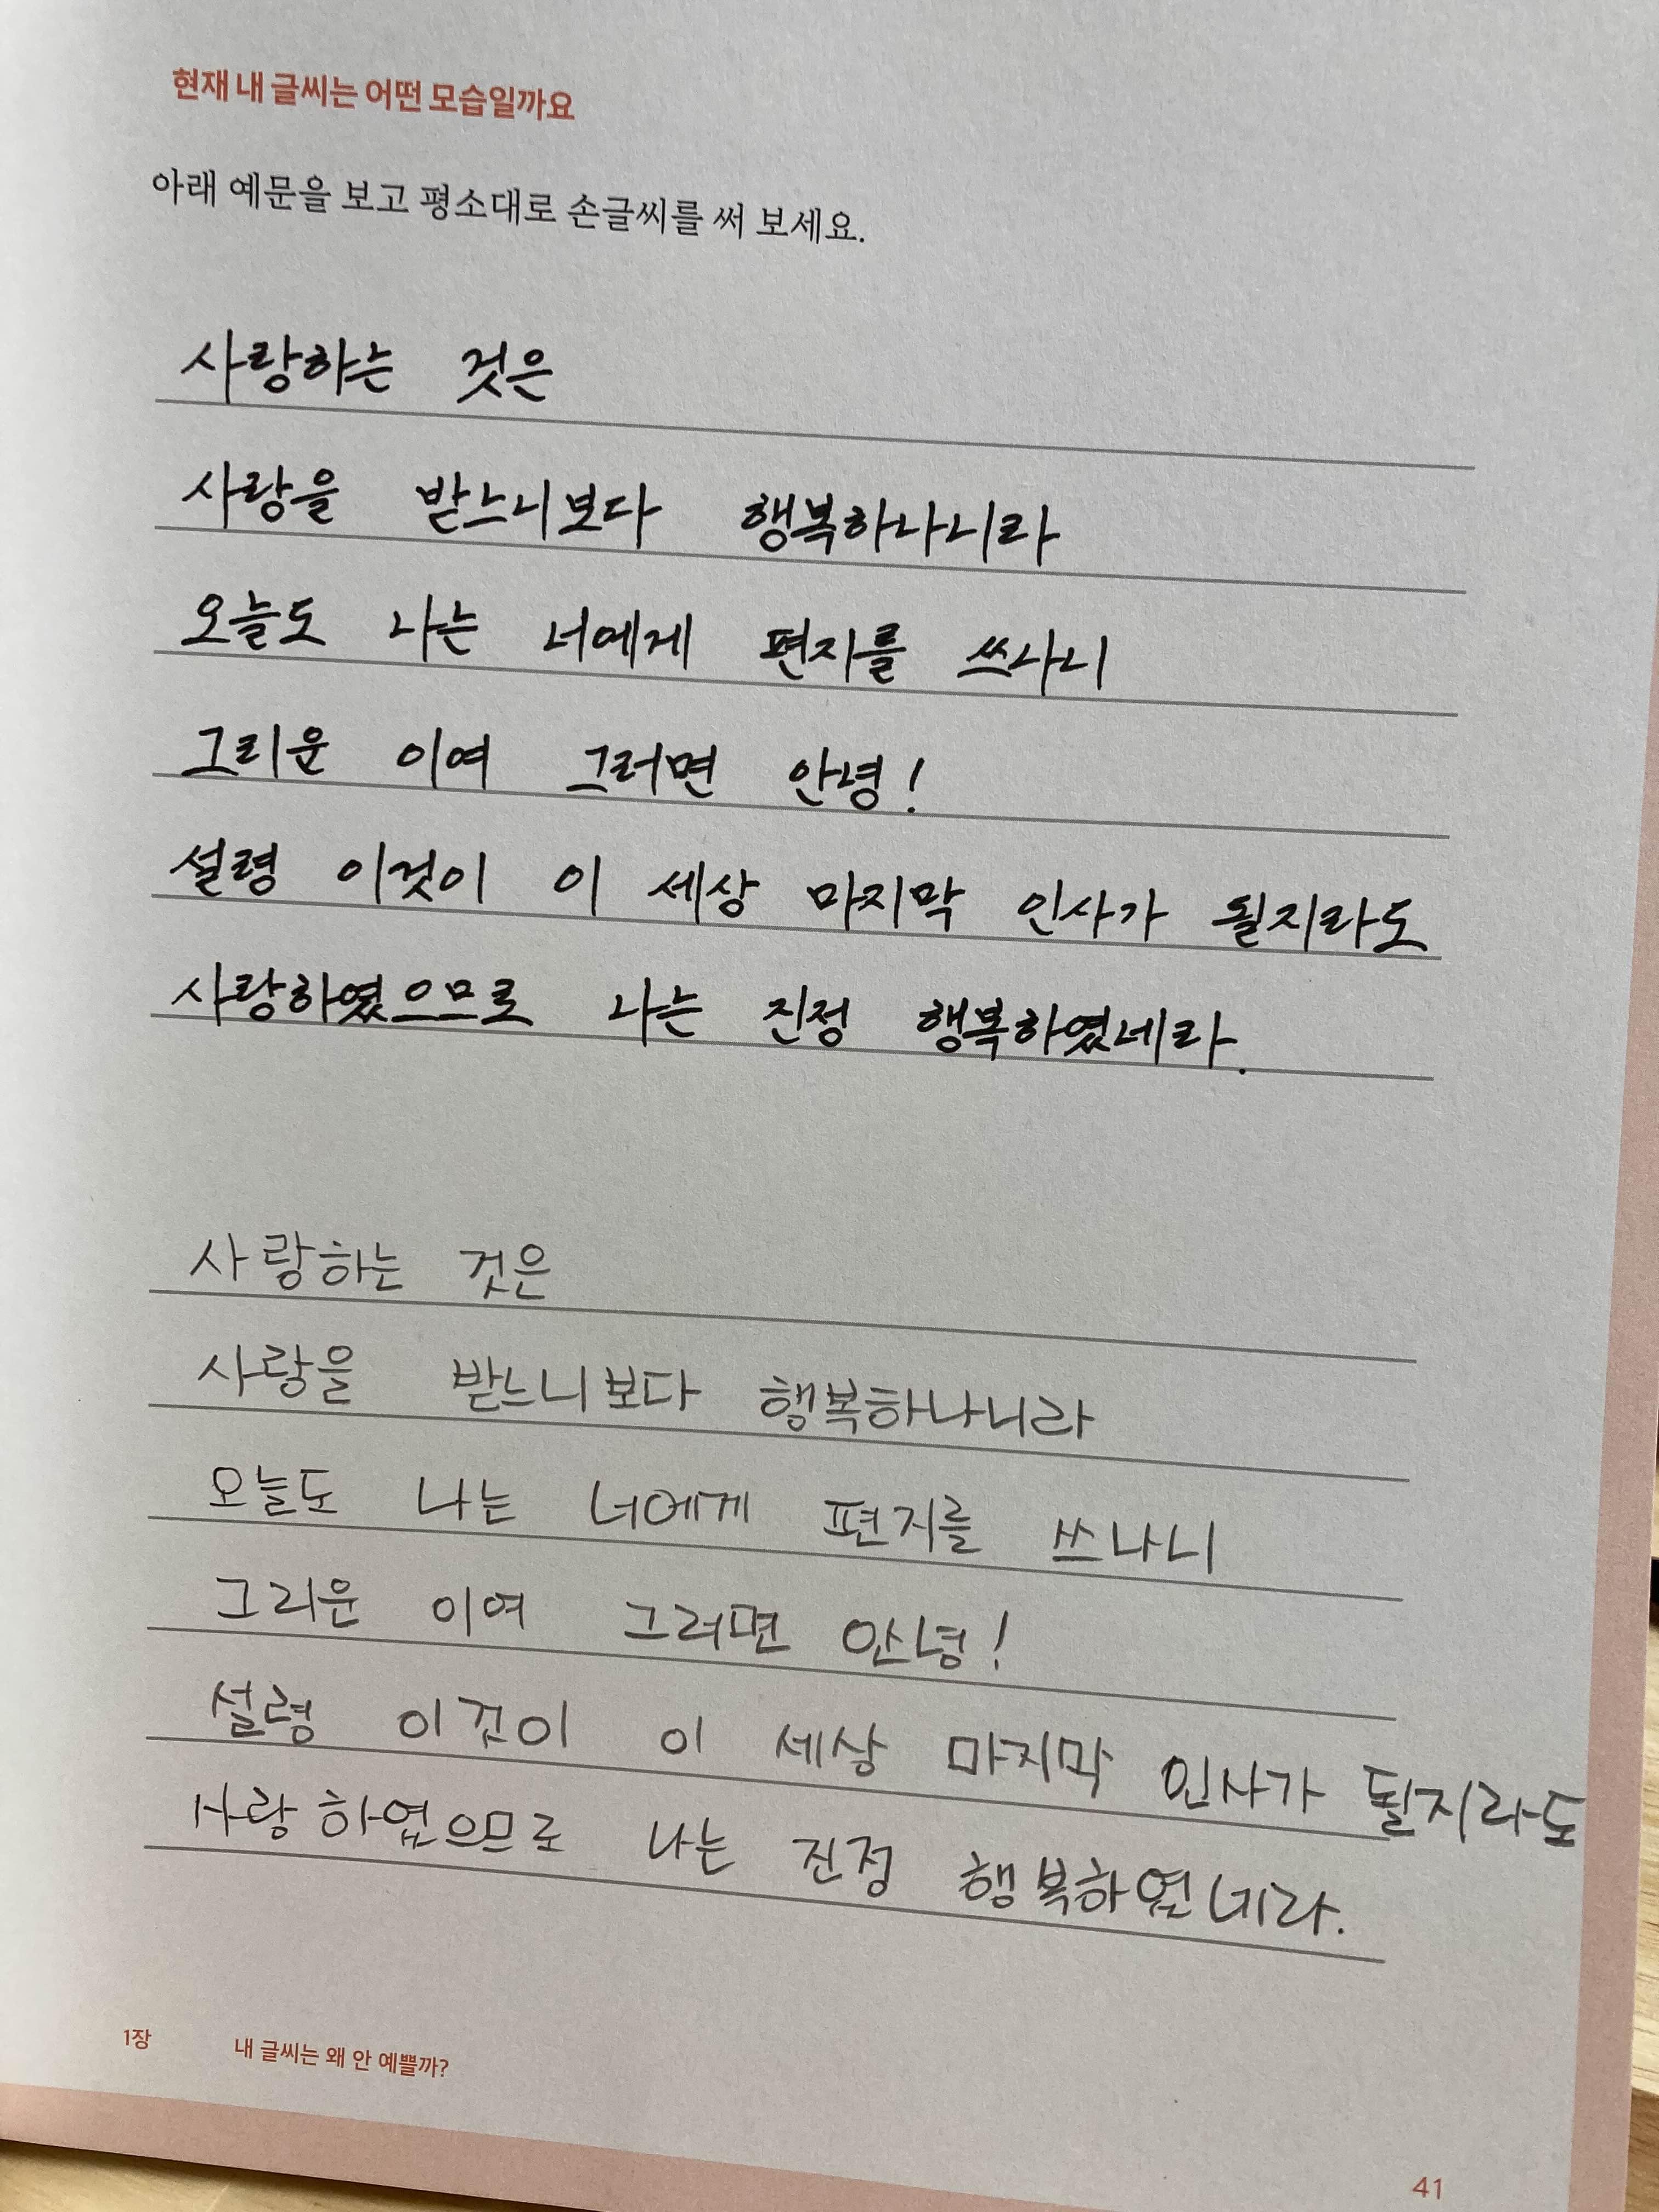 현재 내 글씨는 어떤 모습일까요
아래 예문을 보고 평소대로 손글씨를 써 보세요.
사랑하는 것은
사랑을 받느니보다 행복하나니라
오늘도 나는 너에게 편지를 쓰나니
그리운 이여 그러면 안녕!
설령 이것이 이 세상 마지막 인사가 될지라도
사랑하였으므로 나는 진정 행복하였네라.
사랑하는 것은
사랑을 받느니보다 행복하나니라
오늘도 나는 너에게 편지를 쓰나니
그리운 이여 그러면 안녕!
설령 이것이 이 세상 마지막 인사가 될지라도
사랑하였으므로 나는 진정 행복하였네라.
1장 내 글씨는 왜 안 예쁠까?
41